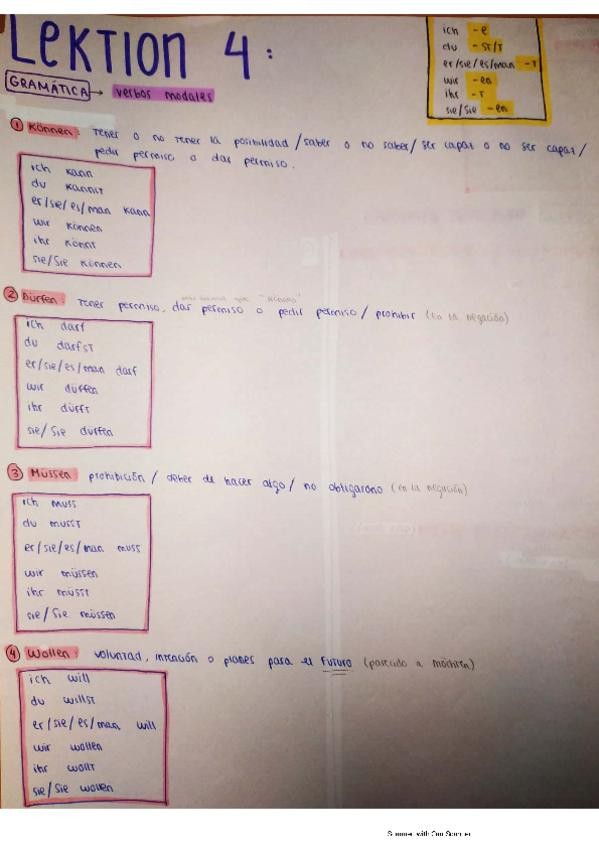 LEKTION 4:
ich -e
du -ST/T
er/sie/es/man -T
wir -en
ihr -T
sie/Sie -en
GRAMÁTICA → verbos modales
① Können: Tener o no tener la posibilidad / saber o no saber / ser capaz o no ser capaz /
pedir permiso o dar permiso.
ich kann
du kannst
er/sie/es/man kann
wir können
ihr könnt
sie/Sie können
② Dürfen: Tener permiso, dar permiso o pedir permiso / prohibir (en la negación)
ich darf
du darfst
er/sie/es/man darf
wir dürfen
ihr dürft
sie/Sie dürfen
③ Müssen: prohibición / deber de hacer algo / no obligarono (en la negación)
ich muss
du musst
er/sie/es/man muss
wir müssen
ihr müsst
sie/Sie müssen
④ Wollen: voluntad, intención o planes para el futuro (parecido a möchten)
ich will
du willst
er/sie/es/man will
wir wollen
ihr wollt
sie/Sie wollen